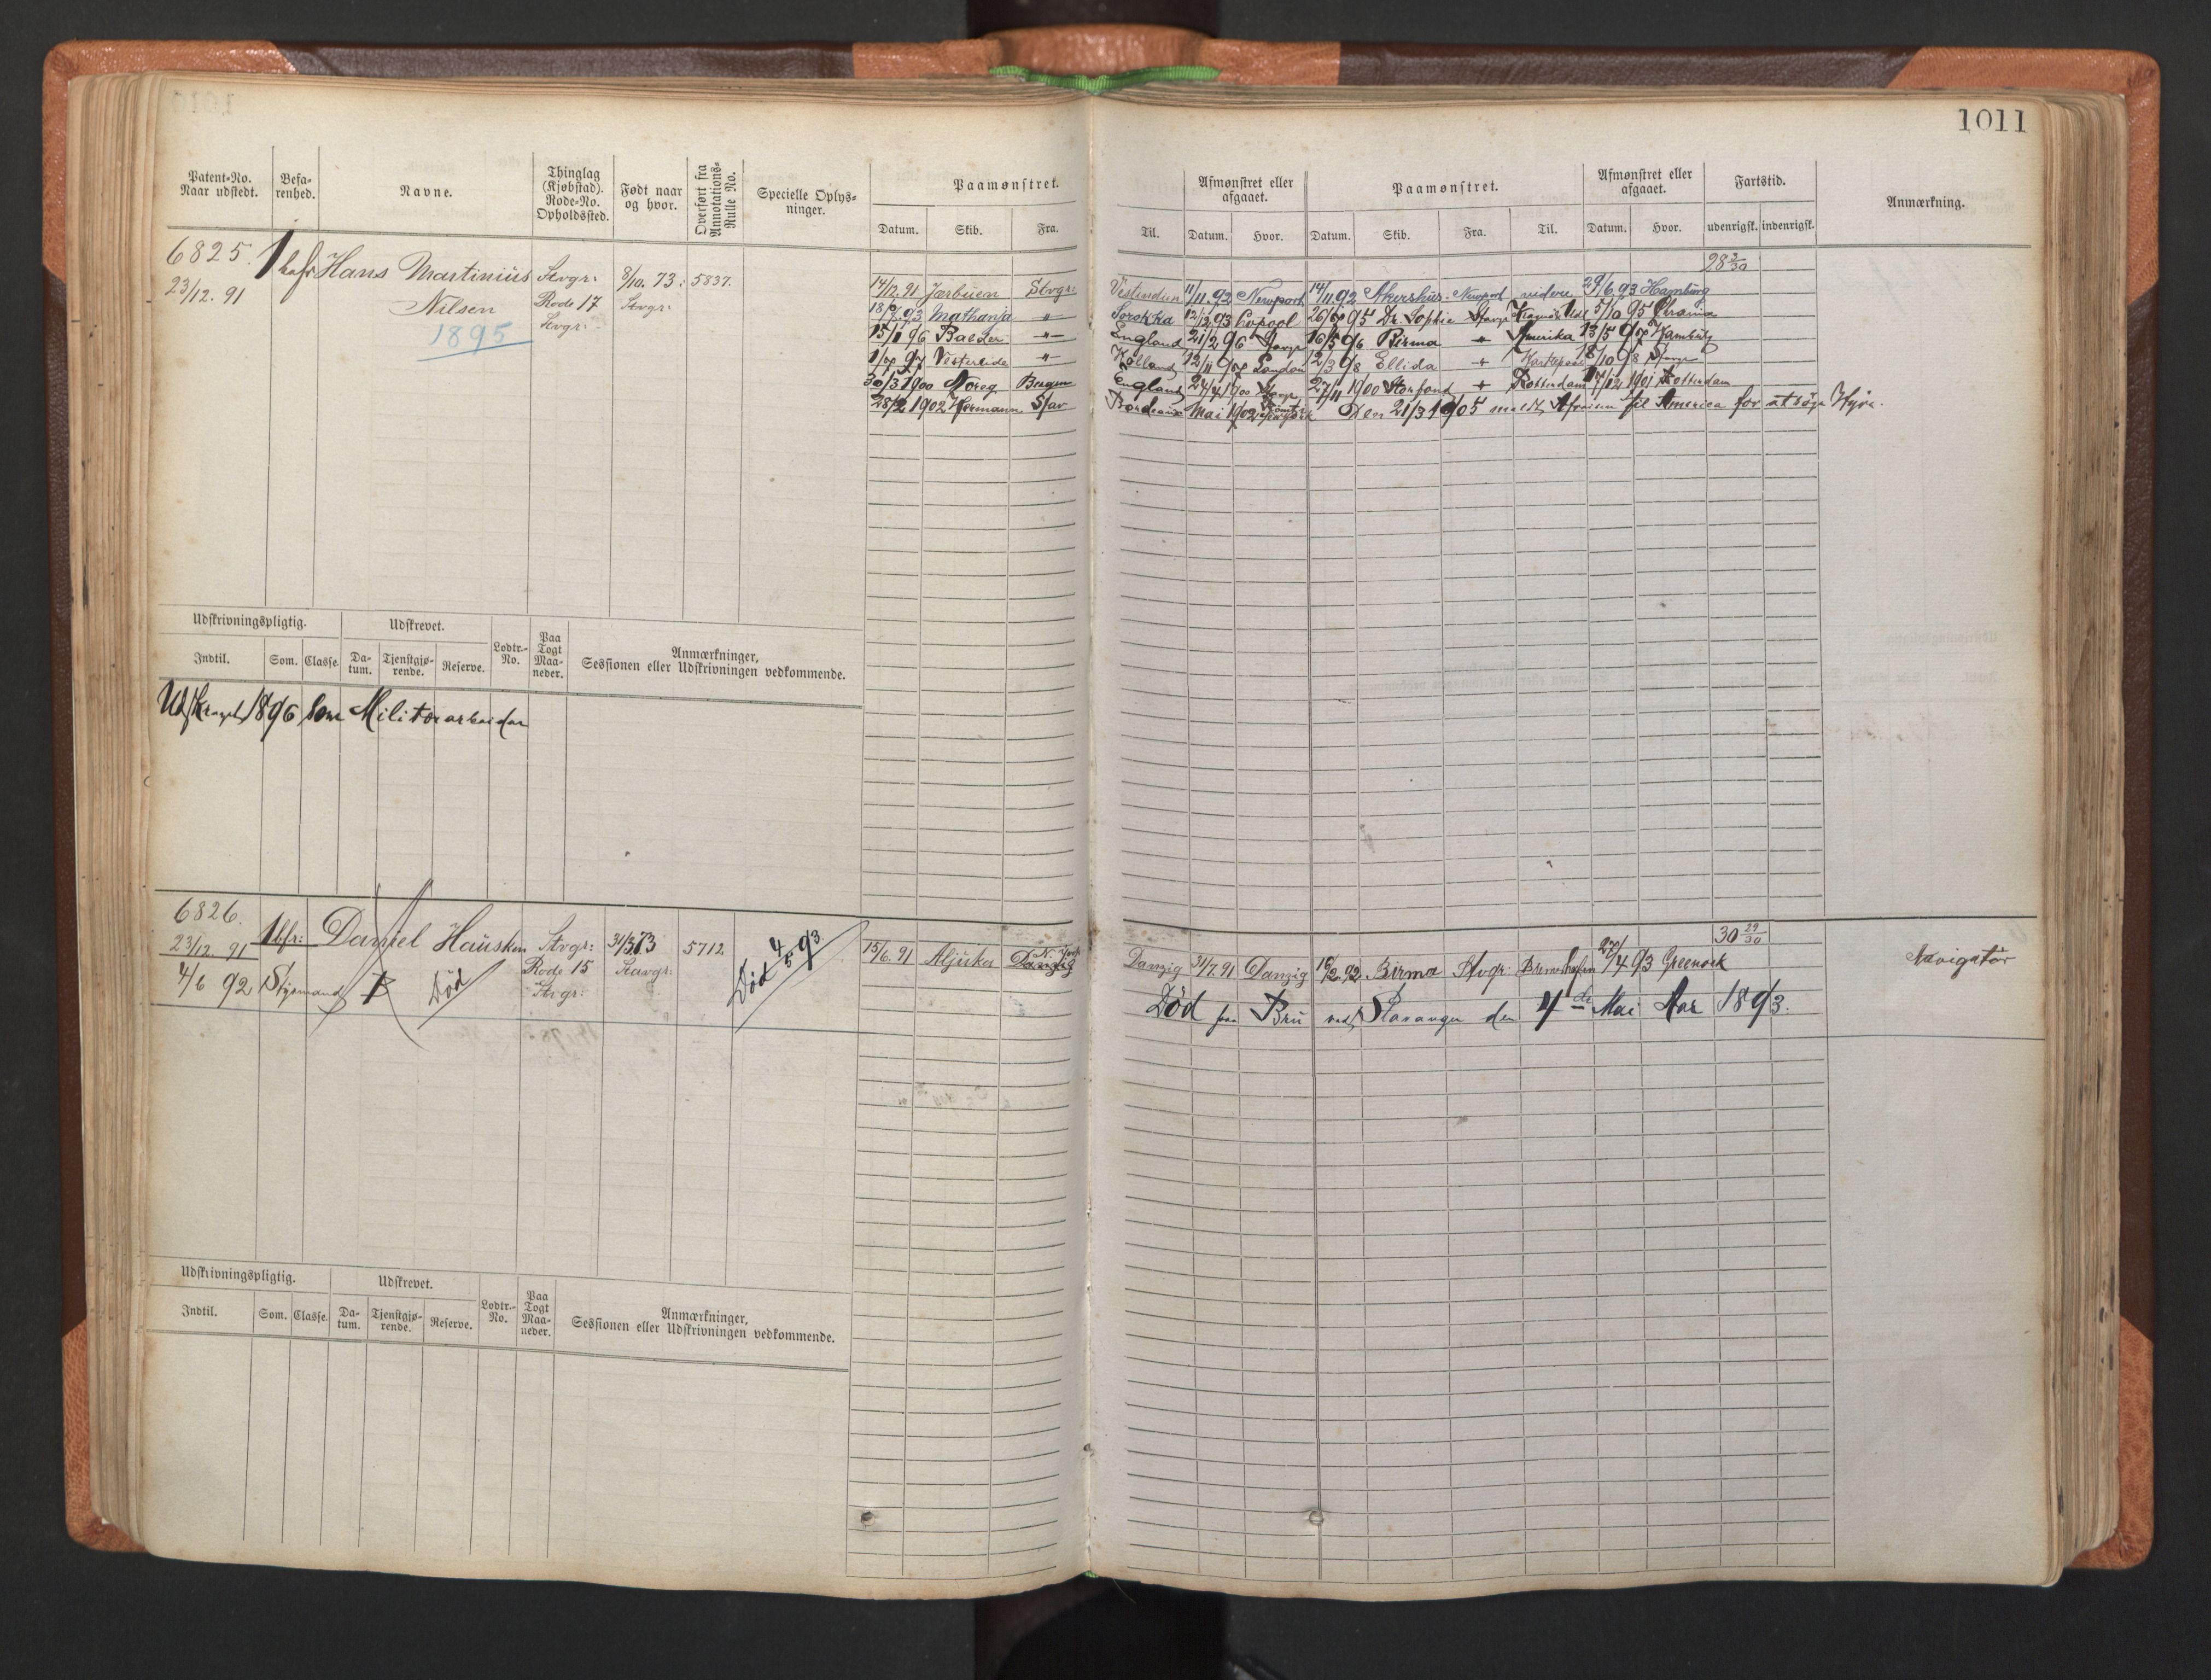 1011
Patent-No. Naar udstedt.
Befa-renhed.
Navne.
Thinglag (Kjøbstad). Rode-No. Opholdssted.
Født naar og hvor.
Overført fra Annotations-Rulle No.
Specielle Oplys-ninger.
Paamønstret.
Datum. Skib. Fra. Til.
Afmønstret eller afgaaet.
Datum. Hvor.
Paamønstret.
Datum. Skib. Fra. Til.
Afmønstret eller afgaaet.
Datum. Hvor.
Fartstid.
udenrigsk. indenrigsk.
Anmærkning.
6825. 1 Hans Martinius Stvgr: 8/10. 73. 5837.
23/12. 91 Nilsen Rode 17 Stvgr:
1895 Stvgr:
28 3/30
14/12. 91 Jærbuen Stvgr: Vestindien 11/11. 92 Newport 14/11. 92 Akershus. Newport videre 29/6. 93 Hamburg
18/7. 93 Mathanja " Sorokka 12/12 93 Livpool 26/7 95 Dr Sophie Stavgr 5/10 95 Chrania
15/1 96 Balder " England 21/2 96 Stavgr 16/5 96 Birma " Amerika 13/5 97 Hamburg
1/7 97 Vesterlide " Holland 12/11 97 London 12/3 98 Ellida " 8/10 98 Stavgr
30/3 1900 Noreg Bergen England 24/7 1900 Stavgr 27/11 1900 " Rotterdam 1901 Rotterdam
28/2 1902 Hermann Stav Bordeaux Mai 1902 Den 21/3 1905 meldt Afreisen til America for at søge Hyre.
Udskrivningspligtig.
Indtil. Som. Classe.
Udskrevet.
Da-tum. Tjenstgjø-rende. Reserve.
Lodtr.-No.
Paa Togt Maa-neder.
Anmærkninger, Sessionen eller Udskrivningen vedkommende.
1896 som Militærarbeider
6826. 1 bfr: Daniel Hausken Stvgr: 31/3 73 5712. Død 4/5 93.
23/12. 91 Rode 15 Stavgr:
4/6 92 Styrmand Død Stvgr:
30 29/30
15/6. 91 Aljuka N. York Danzig Danzig 31/7. 91 Danzig 10/2. 92 Birma Stvgr: Bremerhafen 27/4 93 Greenock Navigatör
Död paa Bru ved Stavanger den 4de Mai Aar 1893.
Udskrivningspligtig.
Indtil. Som. Classe.
Udskrevet.
Da-tum. Tjenstgjø-rende. Reserve.
Lodtr.-No.
Paa Togt Maa-neder.
Anmærkninger, Sessionen eller Udskrivningen vedkommende.